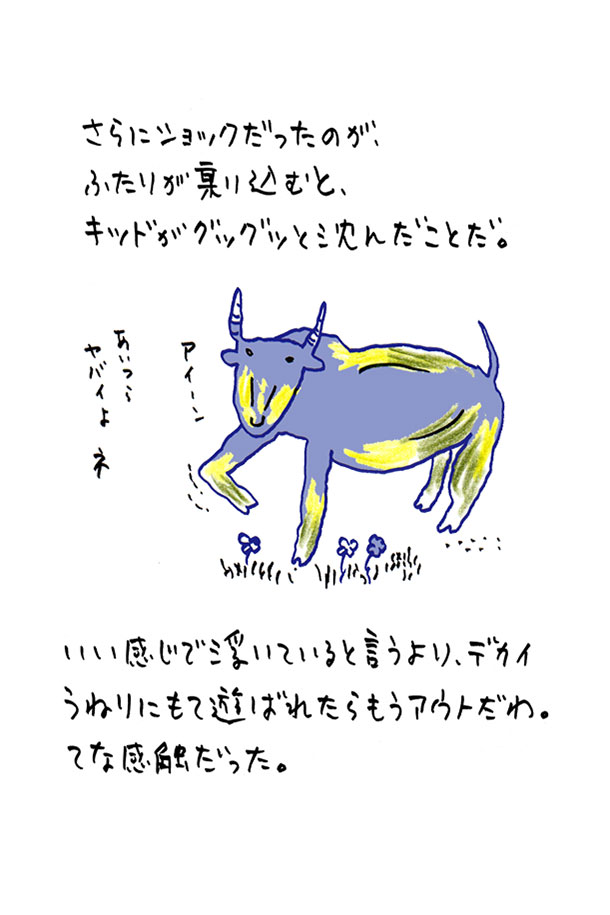 さらにショックだったのが、
ふたりが乗り込むと、
キッドがグッグッと沈んだことだ。
アイーン
あいつら
ヤバイよ ネ
いい感じで浮いていると言うより、デカイ
うねりにもて遊ばれたらもうアウトだわ。
てな感触だった。